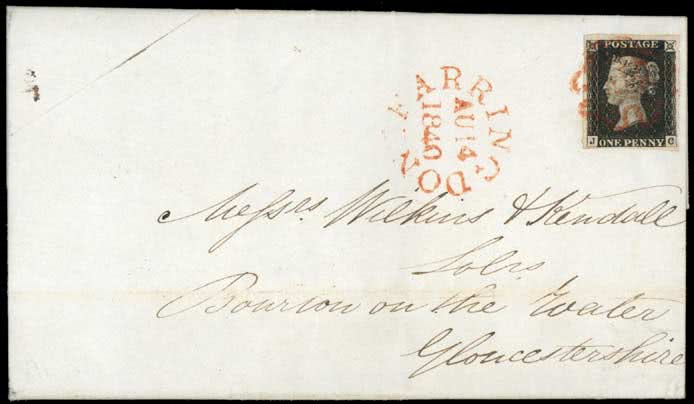 POSTAGE
J G
ONE PENNY
FARRINGDON
AU 14
1840
Messrs. Wilkins & Kendall
Solrs
Bourton on the Water
Gloucestershire